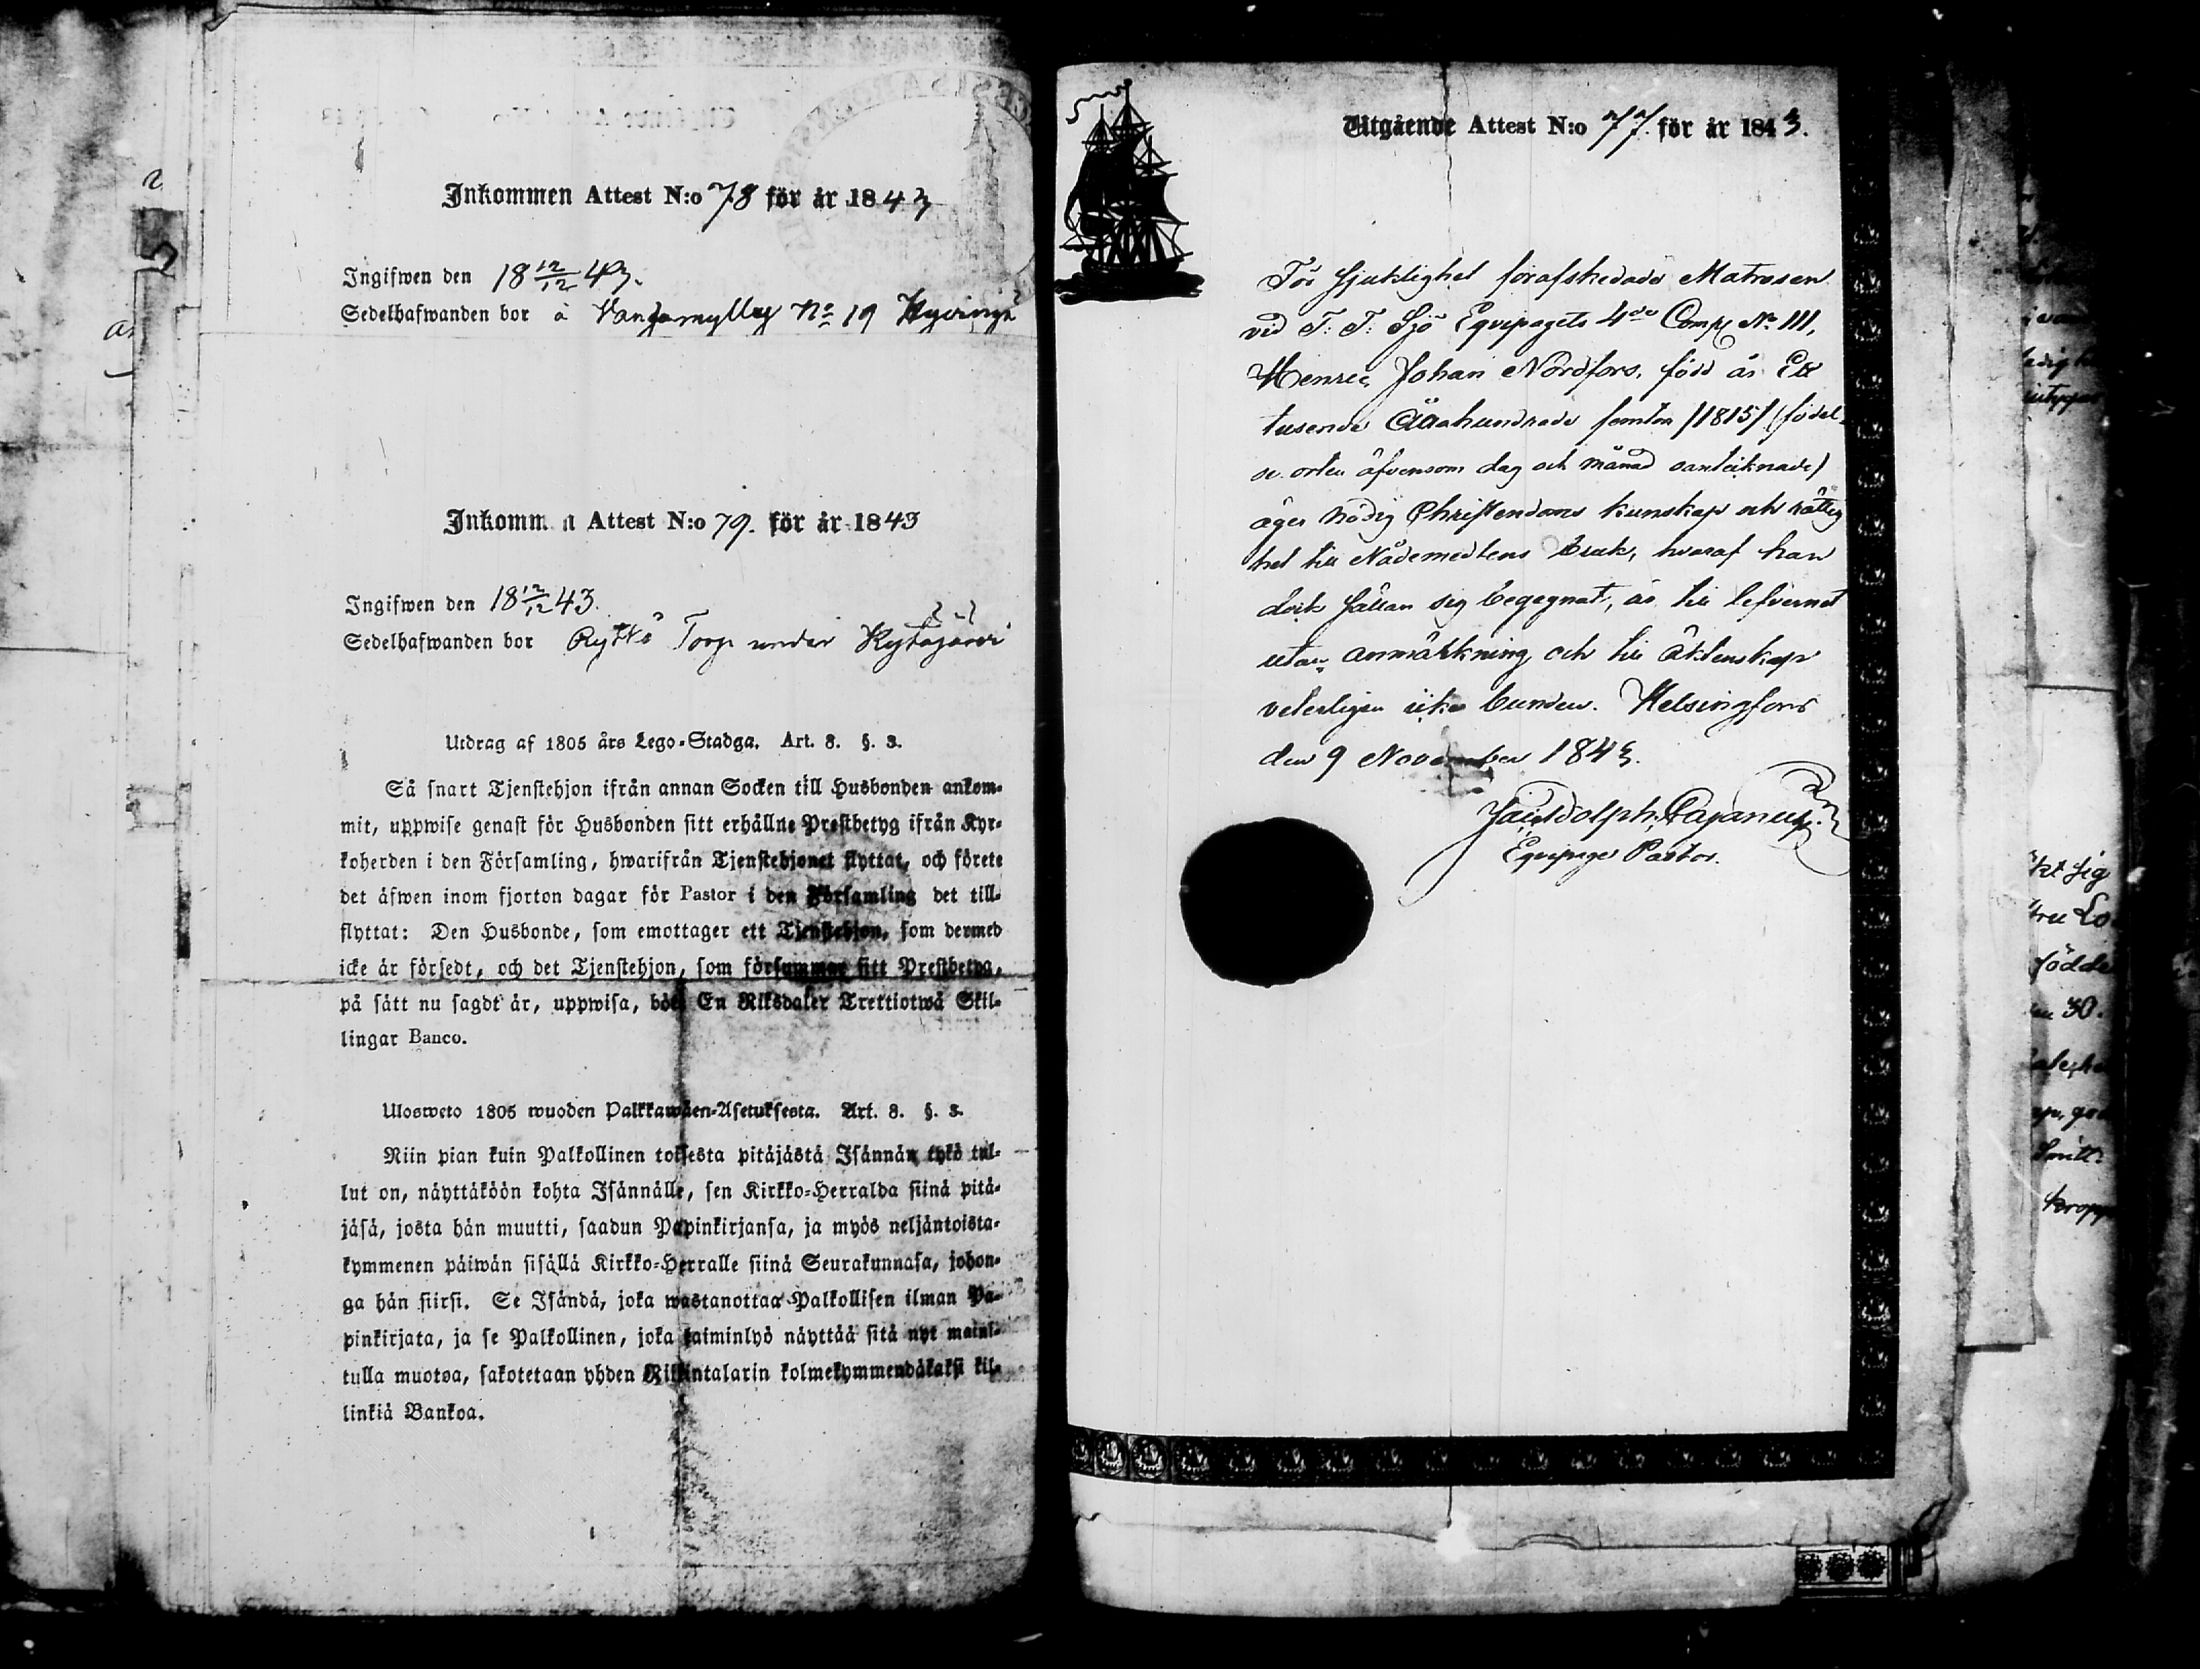 Inkommen Attest N:o 78 för år 1843
Ingifwen den 18 12/12 43.
Sedelhafwanden bor å No 19
Inkomm n Attest N:o 79. för år 1843
Ingifwen den 18 12/12 43.
Sedelhafwanden bor Torp under Kytäjärvi
Utdrag af 1805 års Lego-Stadga. Art. 8. §. 3.
Så snart Tjenstehjon ifrån annan Socken till Husbonden ankom-
mit, uppwise genast för Husbonden sitt erhållne Prestbetyg ifrån Kyr-
koherden i den Församling, hwarifrån Tjenstehjonet flyttat, och förete
det äfwen inom fjorton dagar för Pastor i den Församling det till-
flyttat: Den Husbonde, som emottager ett Tjenstehjon, som dermed
icke är försedt, och det Tjenstehjon, som försummar sitt Prestbetyg,
på sätt nu sagdt är, uppwisa, böte En Riksdaler Trettiotwå Skil-
lingar Banco.
Ulosweto 1805 wuoden Palkkawäen-Asetuksesta. Art. 8. §. 3.
Niin pian kuin Palkollinen toisesta pitäjästä Isännän tykö tul-
lut on, näyttäköön kohta Isännälle, sen Kirkko-Herralda siinä pitä-
jäsä, josta hän muutti, saadun Papinkirjansa, ja myös neljäntoista-
kymmenen päiwän sisällä Kirkko-Herralle siinä Seurakunnasa, johon-
ga hän siirsi. Se Isändä, joka wastanottaa Palkollisen ilman Pa-
pinkirjata, ja se Palkollinen, joka laiminlyö näyttää sitä nyt maini-
tulla muotoa, sakotetaan yhden Riikintalarin kolmekymmendäkaksi kil-
linkiä Bankoa.
Utgående Attest N:o 77. för år 1843.
För sjuklighet förafskedade Matrosen
vid F: F: Sjö Eqvipagets 4de Comp. No 111,
Henric Johan Nordfors, född år Ett
tusende Åttahundrade femton /1815/ (födel-
se orten äfvensom dag och månad oantecknade)
äger nödig Christendoms kunskap och rättig
het till Nådemedlens bruk, hvaraf han
dock sällan sig begagnat, är till lefvernet
utan anmärkning och till äktenskap
veterligen icke bunden. Helsingfors
den 9 November 1843.
Cajanus.
Eqvipage Pastor.